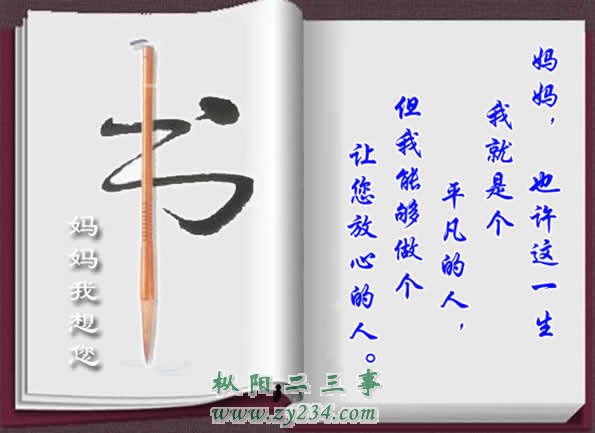 书
妈妈我想您
妈妈，也许这一生
我就是个
平凡的人，
但我能够做个
让您放心的人。
枞阳二三事
www.zy234.com